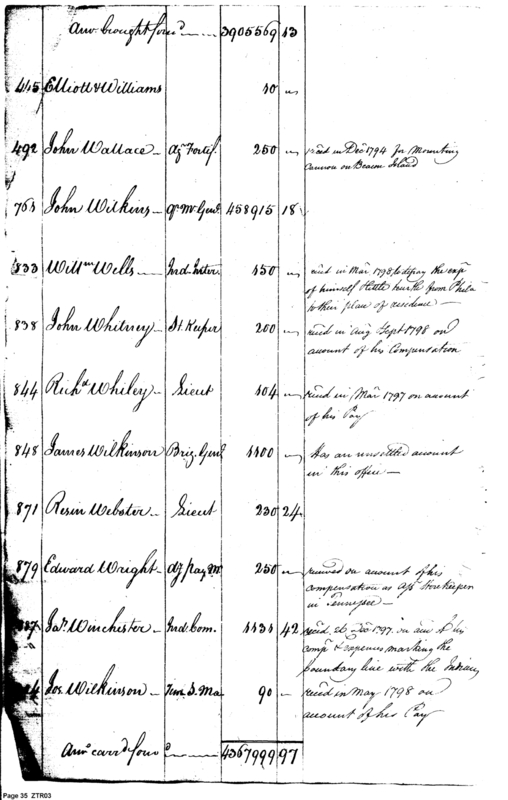 Am.t brought forw.d 3905569 13
445 Elliott & Williams 10 "
492 John Wallace Ag.t Fortif.s 250 " rec'd in Dec.r 1794 for Mounting
Cannon on Beacon Island
John Wilkins Q.r M.r Gen.l 458915 18
833 Will.m Wells Ind. Inter. 150 " rec'd in Mar 1798 to defray the exp.s
of himself turtle from Phila
to their place of residence
838 John Whitney St. Keeper 200 " rec'd in Aug Sept 1798 on
account of his Compensation
844 Rich.d Whiley Lieut 104 " rec'd in Mar 1797 on account
of his Pay
848 James Wilkinson Brig. Gen.l 1100 " Has an unsettled account
in this office
871 Resin Webster Lieut 230 24
879 Edward Wright 250 " received on account of his
compensation as Storekeeper
in Tennessee
Ja.s Winchester Ind. Com. 42 rec'd Dec 1797 on acc.t of his
comp.n & expences marking the
boundary line with the Indians
Jos. Wilkinson 90 " rec'd in May 1798 on
account of his Pay
Am.t carr.d forw.d 4367999 97
Page 35 ZTR03